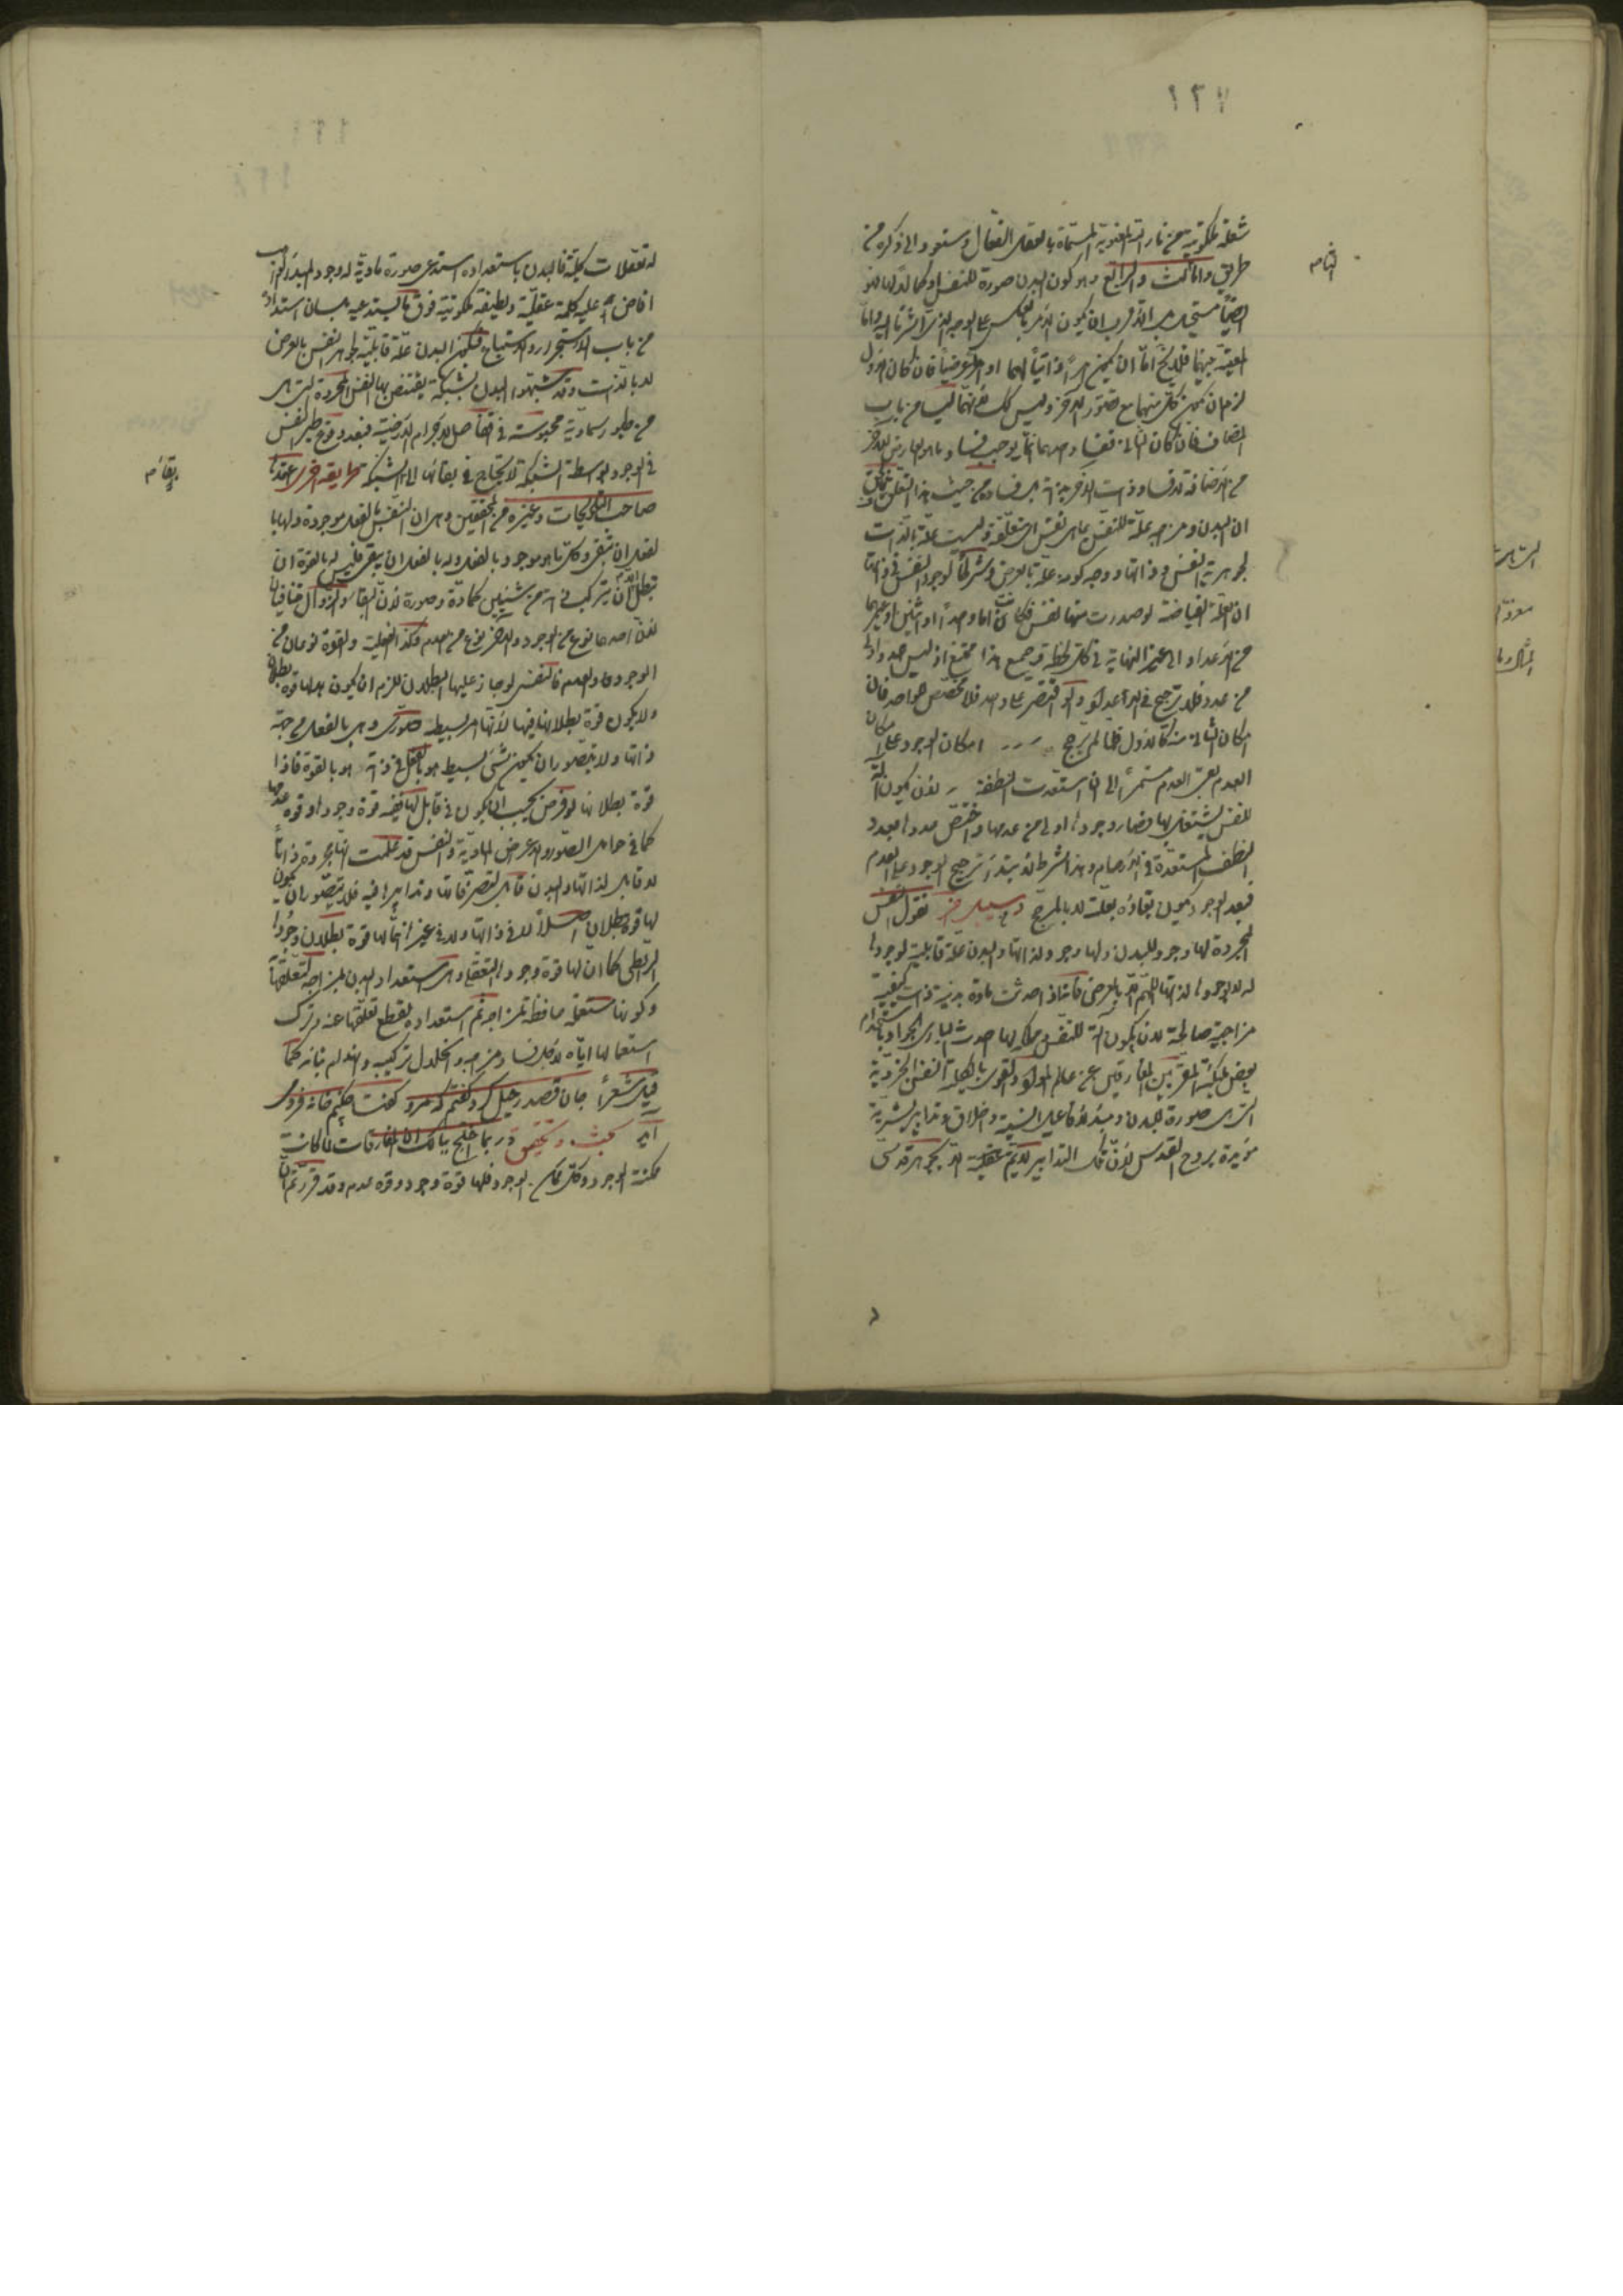 ١٢٧
شعلة ملكوتية من نار الله المعنوية المسماة بالعقل الفعال وستعود الى ذكره من
طريق واما الثالث والرابع وهو كون البدن صورة للنفس او كمالا لها فهو
ايضا مستحيل بل الاقرب ان يكون الامر بالعكس على الوجه الذى اشرنا اليه واما
المعية بينهما فلا يخ اما ان يكون امرا ذاتيا لهما او امرا عرضيا فان كان الاول
لزم ان يكون كل منهما مع تصور الآخر وليس كك فانهما ليسا من باب
المضاف فان كان الثانى ففساد احدهما انما يوجب فساد ما هو العارض للآخر
من الاضافة لا فساد ذات الآخر فساده من حيث هذا التعلق
ان البدن ومزاجه علة للنفس بما هى نفس اى متعلقة وليست علة بالذات
لجوهرية النفس وذاتها ووجه كونه علة بالعرض وشرطا لوجود النفس فى ذاتها
ان العلة الفياضة لو صدرت منها نفس فكانت اما واحدا او اثنين او غيرهما
من الاعداد الى غير النهاية فى كل لحظة وجميع هذا ممتنع اذ ليس عدد اولى
من عدد فلا ترجيح فى الاعداد ولو اقتصر على واحد فلا مخصص لواحد فان
امكان الثانى منه كالاول فلما لم يترجح امكان الوجود على امكان
العدم بقى العدم مستمرا الى ان استعدت النطفة لان يكون آلة
للنفس يشتغل بها فصار وجودها اولى من عدمها واختص عددها بعدد
النطف المستعدة فى الارحام وهذا شرط ابتداء ترجيح الوجود على العدم
فبعد الوجود يكون بقاؤه بعلته لا بالمرجح وسبيل آخر نقول النفس
المجردة لها وجود للبدن ولها وجود لذاتها والبدن علة قابلية لوجودها
له لا لوجودها لذاتها اللهم الا بالعرض فانه اذا حدثت مادة بدنية ذات كيفية
مزاجية صالحة لان يكون آلة للنفس ومملكة لها احدث البارى الجواد باستخدام
بعض ملائكته المقربين المفارقين عن عالم المواد والقوى بالكلية النفس الجزوية
التى هى صورة للبدن ومبدء لافاعيل انسية واخلاق وتدابير بشرية
مؤيدة بروح القدس لان تلك التدابير لا يتم عقلية الا بجوهر قدسى
التامه
له تعقلات كلية فالبدن باستعداده استدعى صورة مادية له وجود المبدء الواهب
افاض عليه كلمة عقلية ولطيفة ملكوتية فوق ما يستدعيه بلسان استعداده
من باب الاستجرار والاستتباع فيكون البدن علة قابلية لجوهر النفس بالعرض
لا بالذات وقد شبهوا البدن بشبكة يقتنص بها النفس المجردة التى هى
من طيور سماوية محبوسة فى اقفاص الاجرام الارضية فبعد وقوع طير النفس
فى الوجود بواسطة الشبكة لا يحتاج فى بقائها الى الشبكة طريقة اخرى اعتمد
صاحب التلويحات وغيره من المحققين وهى ان النفس بالفعل موجودة ولها با
لفعل ان تبقى وكل ما هو موجود بالفعل وله بالفعل ان يبقى فليس له بالقوة ان
تبطل الا ان يتركب فى ذاته من شيئين كمادة وصورة لان البقاء والزوال متنافيان
لان احدهما نوع من الوجود والآخر نوع من العدم وكذا الفعلية والقوة نوعان من
الوجود والعدم فالنفس لو جاز عليها البطلان للزم ان يكون لها قوة بطلان
ولا يكون قوة بطلانها فيها لانها امر بسيط صورى وهى بالفعل من جهة
ذاتها ولا يتصور ان يكون شئ بسيط هو بالفعل فى ذاته هو بالقوة فاذا
قوة بطلانها لو فرض يجب ان يكون فى قابل لها ففيه قوة وجودها وقوة عدمها
كما فى حامل الصور والاعراض المادية والنفس قد علمت انها مجردة ذاتا
لا قابل لذاتها والبدن قابل لتصرفاتها وتدابيرها فيه فلا يتصور ان يكون
لها قوة بطلان اصلا لا فى ذاتها ولا فى غيرها انما لها قوة بطلان وجودها
الرابطى كما ان لها قوة وجودها التعلقى وهى استعداد البدن لمزاجه لتعلقها
وكونها مستعملة حافظة لمزاجه ثم استعداده لقطع تعلقها عنه وترك
استعمالها اياه لاجل فساد مزاجه وانحلال تركيبه وانهدام بنيانه كما
قيل شعرا جان قصد رحيل كرد گفتم كه مرو گفت چكنم خانه فرو مى
آيد بحث وتحقيق ربما اختلج ببالك ان المفارقات لما كانت
ممكنة الوجود وكل ممكن الوجود فلها قوة وجود وقوة عدم وقد قررتم ان
بقائم